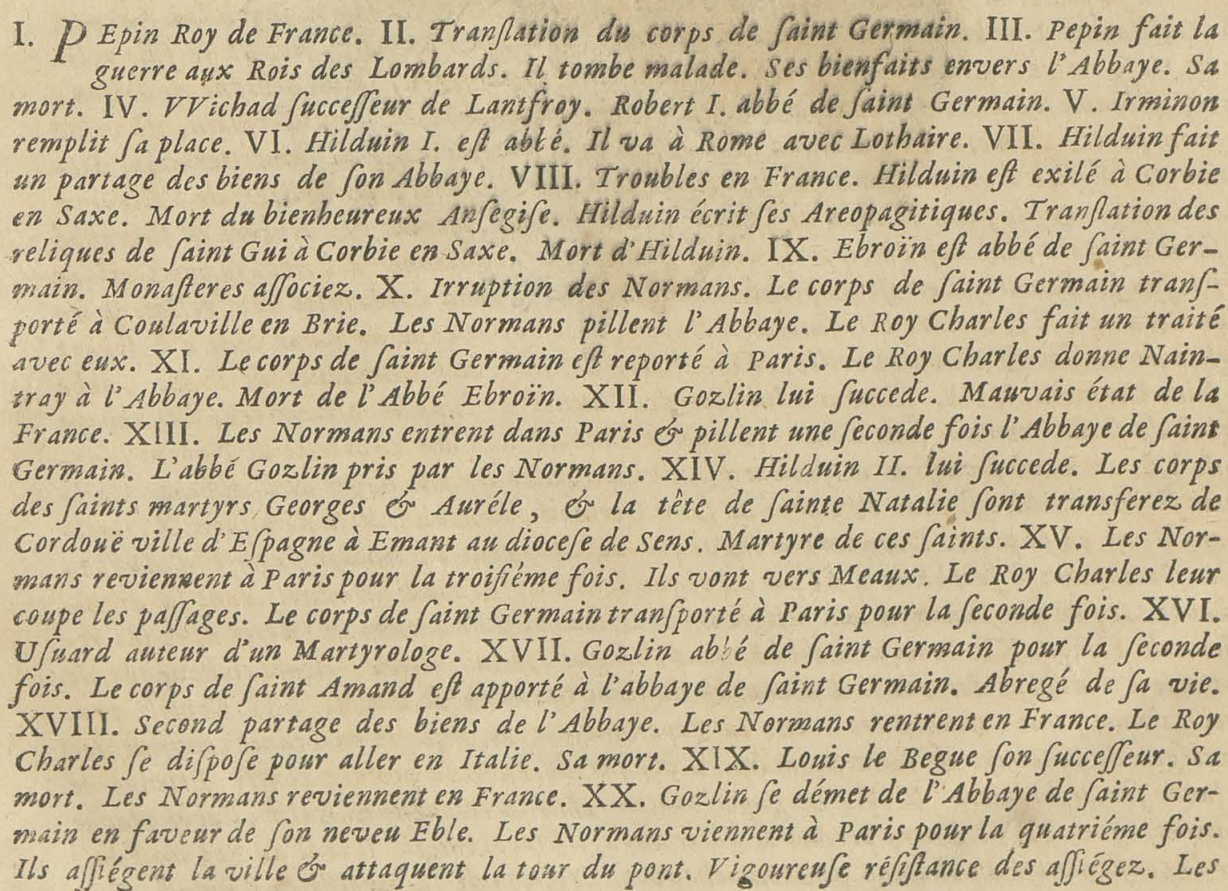 I. PEpin Roy de France. II. Tranſlation du corps de ſaint Germain. III. Pepin fait la
guerre aux Rois des Lombards. Il tombe malade. Ses bienfaits envers l'Abbaye. Sa
mort. IV. VVichad ſucceſſeur de Lantfroy. Robert I. abbé de ſaint Germain. V. Irminon
remplit ſa place. VI. Hilduin I. eſt abbé. Il va à Rome avec Lothaire. VII. Hilduin fait
un partage des biens de ſon Abbaye. VIII. Troubles en France. Hilduin eſt exilé à Corbie
en Saxe. Mort du bienheureux Anſegiſe. Hilduin écrit ſes Areopagitiques. Tranſlation des
reliques de ſaint Gui à Corbie en Saxe. Mort d'Hilduin. IX. Ebroïn eſt abbé de ſaint Ger-
main. Monaſteres aſſociez. X. Irruption des Normans. Le corps de ſaint Germain tranſ-
porté à Coulaville en Brie. Les Normans pillent l'Abbaye. Le Roy Charles fait un traité
avec eux. XI. Le corps de ſaint Germain eſt reporté à Paris. Le Roy Charles donne Nain-
tray à l'Abbaye. Mort de l'Abbé Ebroïn. XII. Gozlin lui ſuccede. Mauvais état de la
France. XIII. Les Normans entrent dans Paris & pillent une ſeconde fois l'Abbaye de ſaint
Germain. L'abbé Gozlin pris par les Normans. XIV. Hilduin II. lui ſuccede. Les corps
des ſaints martyrs Georges & Auréle, & la tête de ſainte Natalie ſont transferez de
Cordouë ville d'Eſpagne à Emant au dioceſe de Sens. Martyre de ces ſaints. XV. Les Nor-
mans reviennent à Paris pour la troiſiéme fois. Ils vont vers Meaux. Le Roy Charles leur
coupe les paſſages. Le corps de ſaint Germain tranſporté à Paris pour la ſeconde fois. XVI.
Uſuard auteur d'un Martyrologe. XVII. Gozlin abbé de ſaint Germain pour la ſeconde
fois. Le corps de ſaint Amand eſt apporté à l'abbaye de ſaint Germain. Abregé de ſa vie.
XVIII. Second partage des biens de l'Abbaye. Les Normans rentrent en France. Le Roy
Charles ſe diſpoſe pour aller en Italie. Sa mort. XIX. Louis le Begue ſon ſucceſſeur. Sa
mort. Les Normans reviennent en France. XX. Gozlin ſe démet de l'Abbaye de ſaint Ger-
main en faveur de ſon neveu Eble. Les Normans viennent à Paris pour la quatriéme fois.
Ils aſſiégent la ville & attaquent la tour du pont. Vigoureuſe réſiſtance des aſſiégez. Les